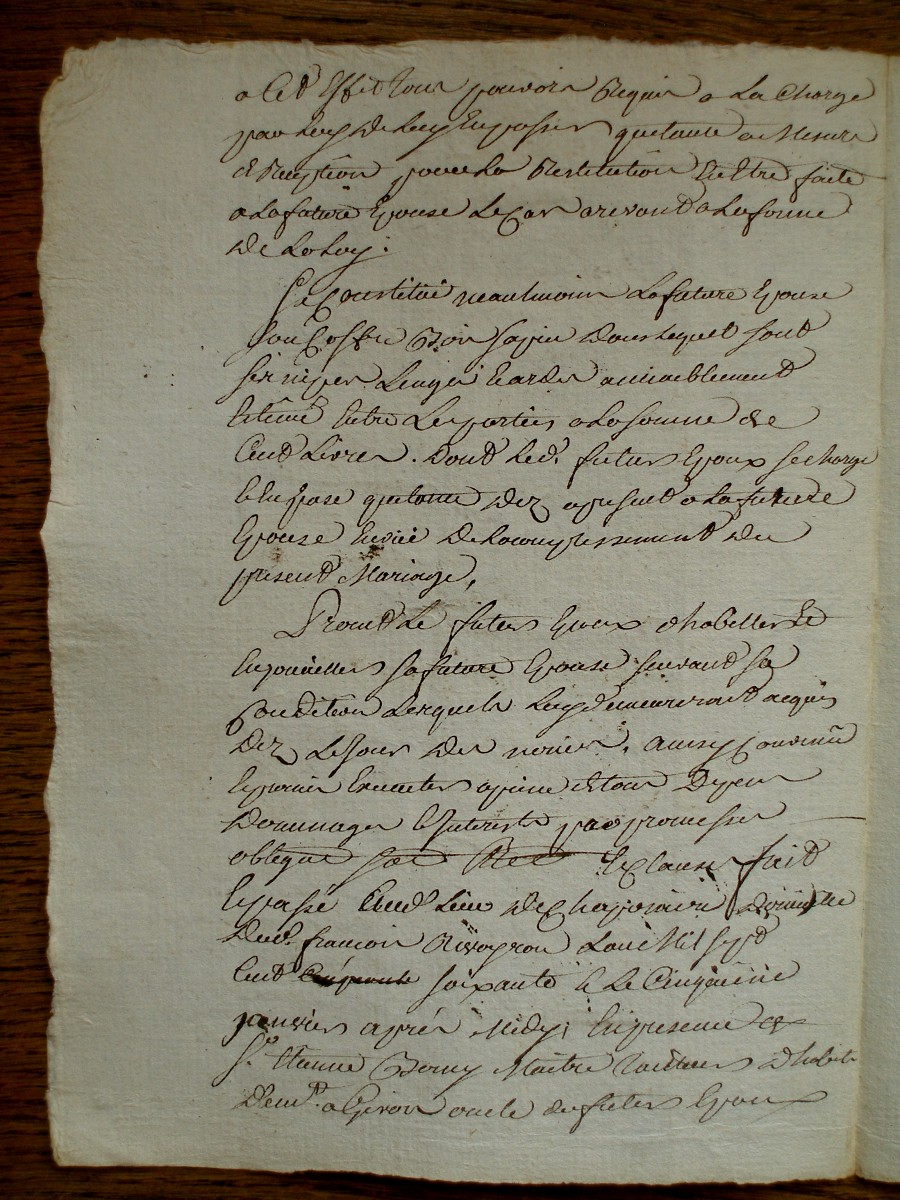 a Cet Effet tous pouvoirs Requis a La Charge
par Luy De Luy En passer quitance a Mesure
de Reception pour La Restitution En Etre faite
a La future Epouse Le Cas arrivant a La forme
de La Loy.
Se Constitue neaulmoins La future Epouse
Son Coffre Bois Sapin Dans Lequel sont
ses nipes Linges hardes amiablement
Estimé Entre Les parties a La somme de
Cent Livres. Dont Led. futur Epoux se charge
et En passe quitance Dez apresent a La future
Epouse En vüe De Lacomplissement du
present Mariage,
Promet Le futur Epoux dhabiller Et
Enjoueller sa future Epouse suivant sa
Condition Lesquels Luy Demeureront acquis
Dez Le Jour des noces, ainsy Convenu
Et promis Executer a peine de tous Depens
Dommages et Interests par promesses
obligeé Et Clauses fait
Et passé aud. Lieu de domicile
Dud. francois Lan Mil sept
Cent soixante et Le Cinquieme
janvier après Midy, En presence de
Sr. Etienne Maitre dhabit.
Demt. a oncle du futur Epoux